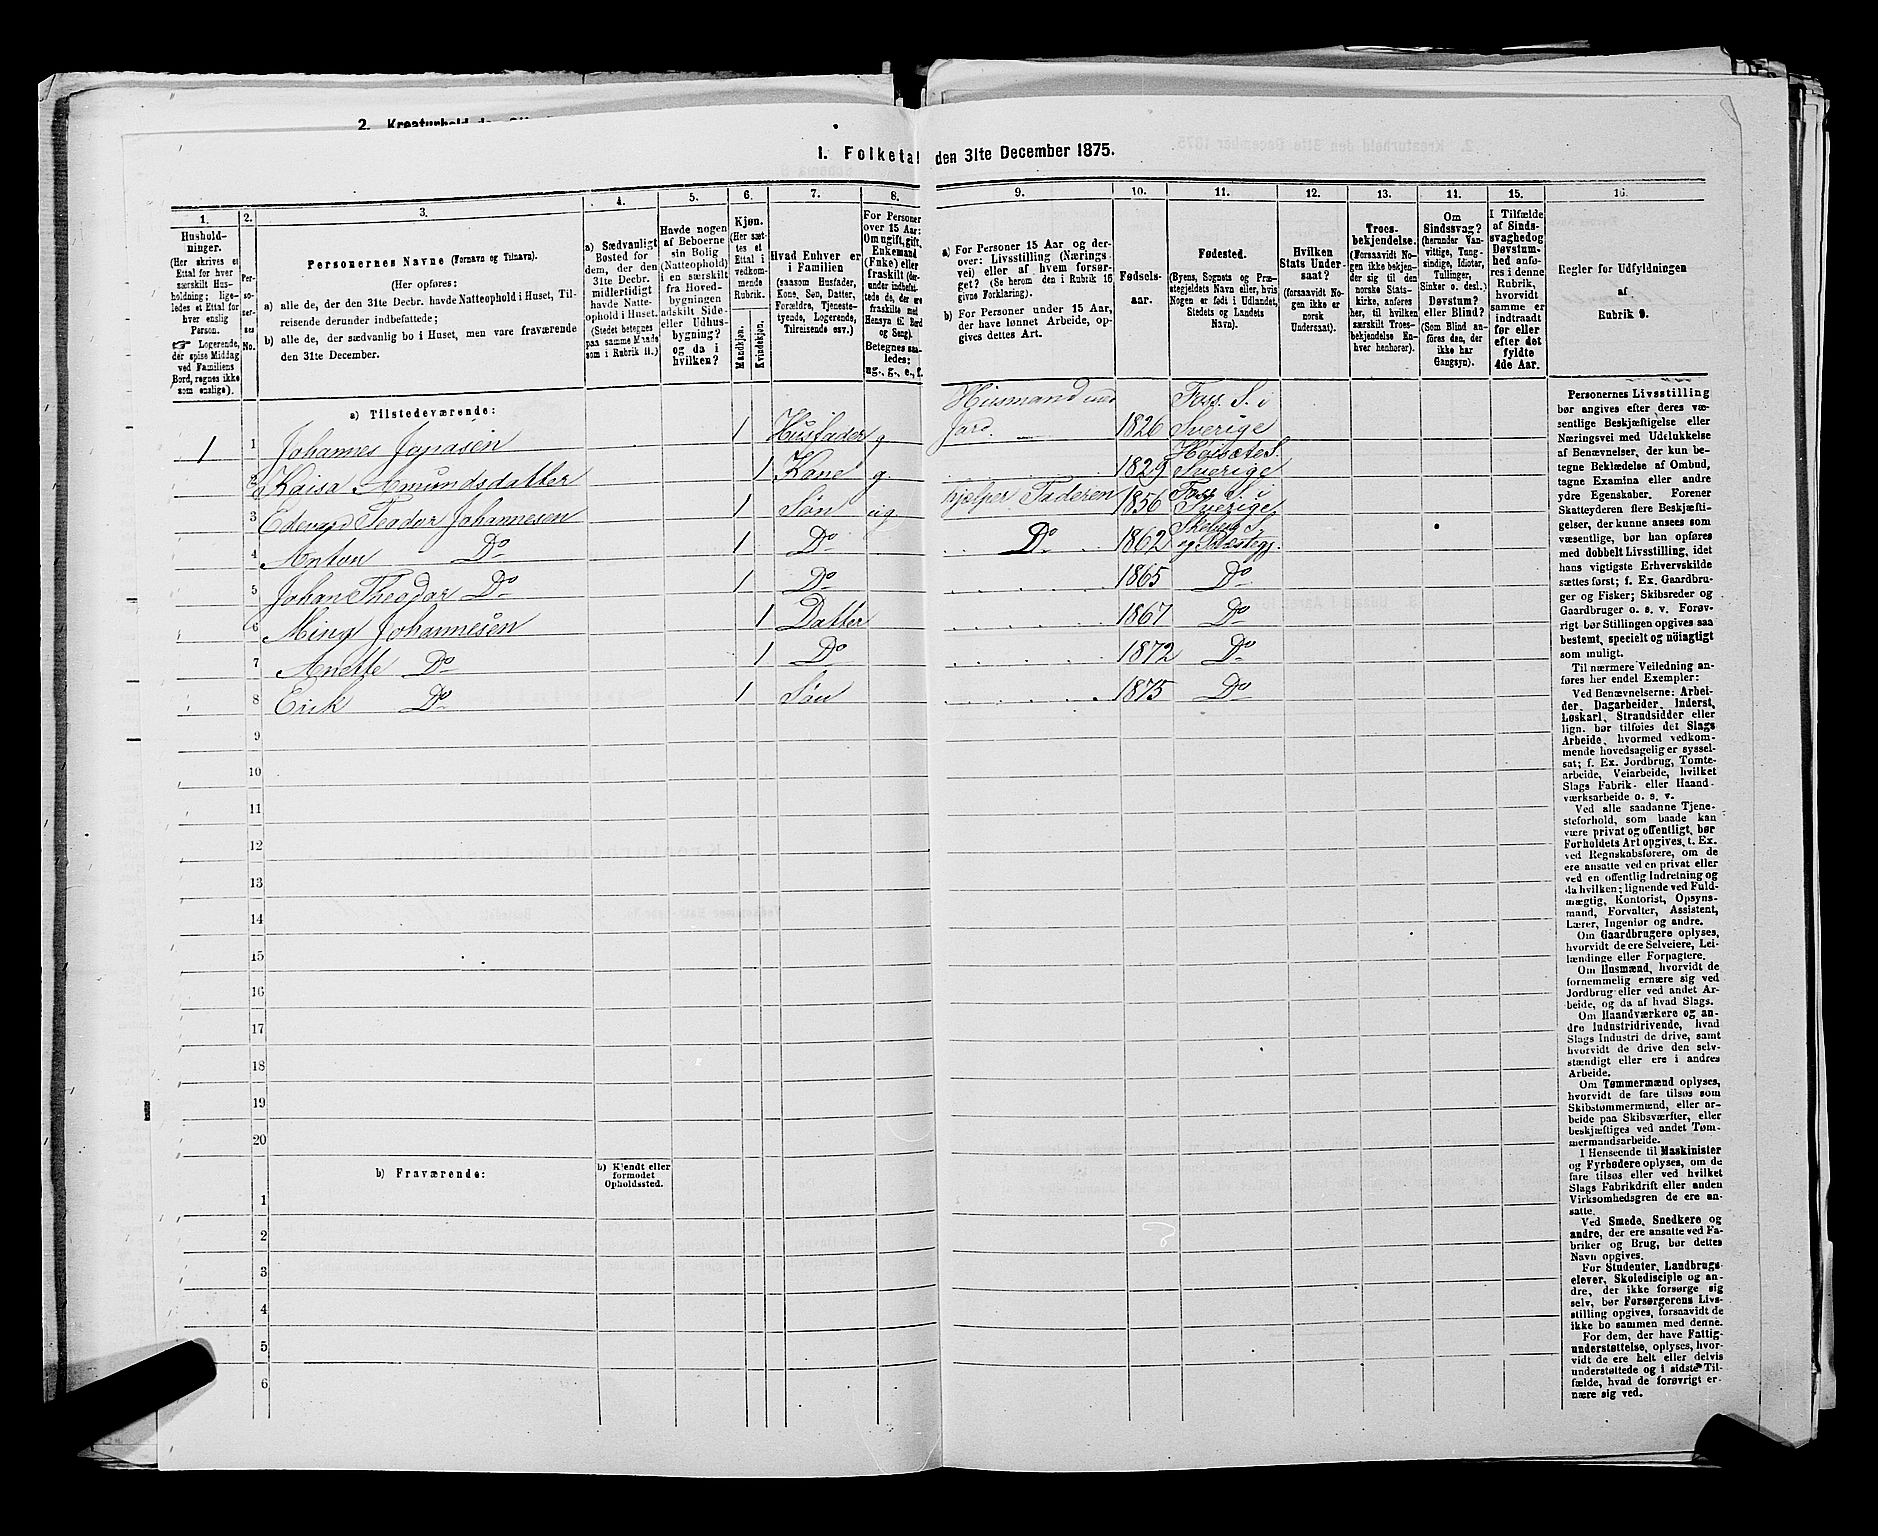 2. Kreaturhold den
1. Folketal den 31te December 1875.
1.
2.
3.
4.
5.
6.
7.
8.
9.
10.
11.
12.
13.
14.
15.
16.
Hushold-
ninger.
(Her skrives et
Ettal for hver
særskilt Hus-
holdning; lige-
ledes et Ettal for
hver enslig
Person.
☞ Logerende,
der spise Middag
ved Familiens
Bord, regnes ikke
som enslige).
Per-
so-
ner-
nes
No.
Personernes Navne (Fornavn og Tilnavn).
(Her opføres:
a) alle de, der den 31te Decbr. havde Natteophold i Huset, Til-
reisende derunder indbefattede;
b) alle de, der sædvanlig bo i Huset, men vare fraværende
den 31te December.
a) Sædvanligt
Bosted for
dem, der den
31te Decbr.
midlertidigt
havde Natte-
ophold i Huset.
(Stedet betegnes
paa samme Maade
som i Rubrik 11.)
Havde nogen
af Beboerne
sin Bolig
(Natteophold)
i en særskilt
fra Hoved-
bygningen
adskilt Side-
eller Udhus-
bygning?
og da i
hvilken?
Kjøn.
(Her sæt-
tes et
Ettal i
vedkom-
mende
Rubrik.
Mandkjøn.
Kvindekjøn.
Hvad Enhver er
i Familien
(saasom Husfader,
Kone, Søn, Datter,
Forældre, Tjeneste-
tyende, Logerende,
Tilreisende osv.)
For Personer
over 15 Aar:
Om ugift, gift,
Enkemand
(Enke) eller
fraskilt (der-
under indbefat-
tede de, der ere
fraskilte med
Hensyn til Bord
og Seng).
Betegnes saa-
ledes:
ug., g., e., f.
a) For Personer 15 Aar og der-
over: Livsstilling (Nærings-
vei) eller af hvem forsør-
get? (Se herom den i Rubrik 16
givne Forklaring).
b) For Personer under 15 Aar,
der have lønnet Arbeide, op-
gives dettes Art.
Fødsels-
aar.
Fødested.
(Byens, Sognets og Præ-
stegjeldets Navn, eller, hvis
Nogen er født i Udlandet,
Stedets og Landets
Navn).
Hvilken
Stats Under-
saat?
(forsaavidt No-
gen ikke er
norsk
Undersaat).
Troes-
bekjendelse.
(Forsaavidt No-
gen ikke bekjen-
der sig til den
norske Stats-
kirke, anføres
her, til hvilken
særskilt Troes-
bekjendelse En-
hver henhører).
Om
Sindssvag?
(herunder Van-
vittige, Tung-
sindige, Idioter,
Tullinger,
Sinker o. desl.)
Døvstum?
eller Blind?
(Som Blind an-
føres den, der
ikke har
Gangsyn).
I Tilfælde
af Sinds-
svaghed og
Døvstum-
hed anfø-
res i denne
Rubrik,
hvorvidt
samme er
indtraadt
før eller
efter det
fyldte
4de Aar.
Regler for Udfyldningen
af
Rubrik 9.
a) Tilstedeværende:
Husmand med Foss. S. i
1 1 Johannes 1 Husfader g Jord. 1826 Sverige
2 Kaisa Amundsdatter 1 Kone g. 1829 Sverige
3 Edevard Teodor Johannesen 1 Søn ug. hjelper Faderen 1856 Foss S. i Sverige
4 Anton Do 1 Do Do 1862 og Præstegj.
5 Johan Theodor Do 1 Do 1865 Do
6 Johannesen 1 Datter 1867 Do
7 Anette Do 1 Do 1872 Do
8 Erik Do 1 Søn 1875 Do
9
10
11
12
13
14
15
16
17
18
19
20
b) Fraværende:
b) Kjendt eller
formodet
Opholdssted.
1
2
3
4
5
6
Personernes Livsstilling
bør angives efter deres væ-
sentlige Beskjæftigelse eller
Næringsvei med Udelukkelse
af Benævnelser, der kun be-
tegne Beklædelse af Ombud,
tagne Examina eller andre
ydre Egenskaber. Forener
Skatteyderen flere Beskjæfti-
gelser, der kunne ansees som
væsentlige, bør han opføres
med dobbelt Livsstilling, idet
hans vigtigste Erhvervskilde
sættes først; f. Ex. Gaardbru-
ger og Fisker; Skibsreder og
Gaardbruger o. s. v. Forøv-
rigt bør Stillingen opgives saa
bestemt, specielt og nøiagtigt
som muligt.
Til nærmere Veiledning an-
føres her endel Exempler:
Ved Benævnelserne: Arbei-
der, Dagarbeider, Inderst,
Løskarl, Strandsidder eller
lign. bør tilføies det Slags
Arbeide, hvormed vedkom-
mende hovedsagelig er syssel-
sat; f. Ex. Jordbrug, Tomte-
arbeide, Veiarbeide, hvilket
Slags Fabrik- eller Haand-
værksarbeide o. s. v.
Ved alle saadanne Tjene-
steforhold, som baade kan
være privat og offentligt, bør
Forholdets Art opgives, t. Ex.
ved Regnskabsførere, om de
ere ansatte ved en privat eller
ved en offentlig Indretning og
da hvilken; lignende ved Fuld-
mægtig, Kontorist, Opsyns-
mand, Forvalter, Assistent,
Lærer, Ingeniør og andre.
Om Gaardbrugere oplyses,
hvorvidt de ere Selveiere, Lei-
lændinge eller Forpagtere.
Om Husmænd, hvorvidt de
fornemmelig ernære sig ved
Jordbrug eller ved andet Ar-
beide, og da af hvad Slags.
Om Haandværkere og an-
dre Industridrivende, hvad
Slags Industri de drive, samt
hvorvidt de drive den selv-
stændigt eller ere i andres
Arbeide.
Om Tømmermænd oplyses,
hvorvidt de fare tilsøs som
Skibstømmermænd, eller ar-
beide paa Skibsværfter, eller
beskjæftiges ved andet Tøm-
mermandsarbeide.
I Henseende til Maskinister
og Fyrbødere oplyses, om de
fare tilsøs eller ved hvilket
Slags Fabrikdrift eller anden
Virksomhedsgren de ere an-
satte.
Ved Smede, Snedkere og
andre, der ere ansatte ved Fa-
briker og Brug, bør dettes
Navn opgives.
For Studenter, Landbrugs-
elever, Skoledisciple og an-
dre, der ikke forsørge sig
selv, bør Forsørgerens Livs-
stilling opgives, forsaavidt de
ikke bo sammen med denne.
For dem, der have Fattig-
understøttelse, oplyses, hvor-
vidt de ere helt eller delvis
understøttede og i sidste Til-
fælde, hvad de forøvrigt er-
nære sig ved.